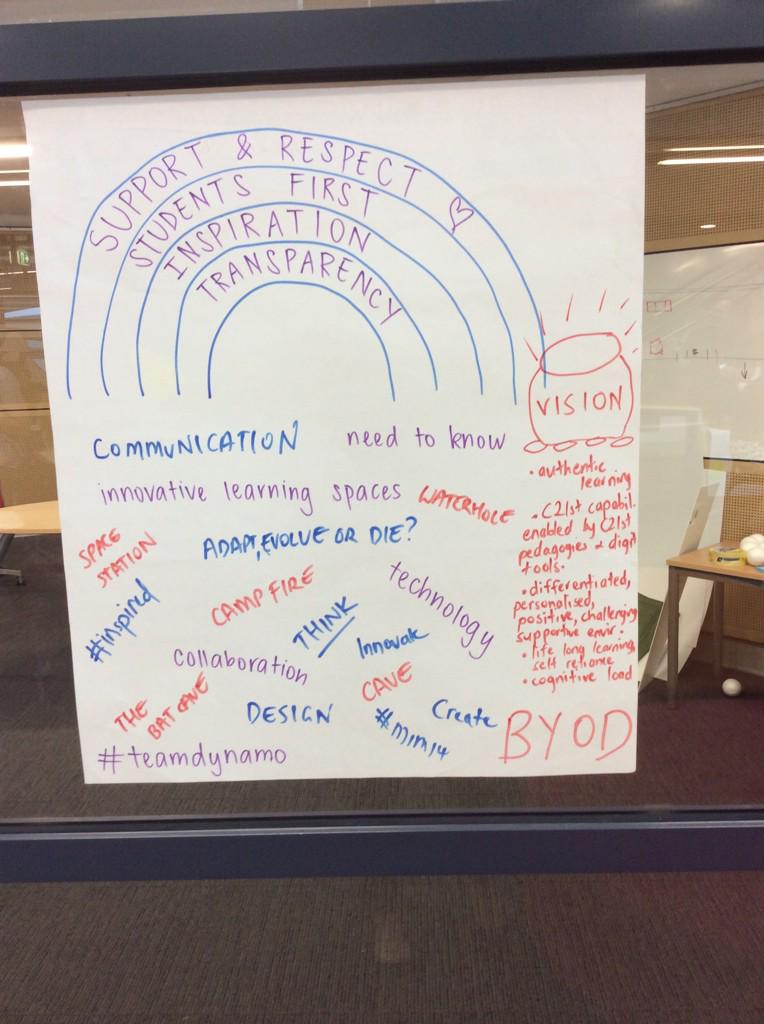 SUPPORT & RESPECT
STUDENTS FIRST
INSPIRATION
TRANSPARENCY
VISION
COMMUNICATION
need to know
innovative learning spaces
WATERHOLE
SPACE
STATION
ADAPT, EVOLVE OR DIE?
#inspired
CAMP FIRE
THINK
technology
collaboration
Innovate
CAVE
THE
BAT CAVE
DESIGN
#mimi4
Create
#teamdynamo
• authentic
learning
• C21st capabil.
enabled by C21st
pedagogies + digit
tools.
• differentiated,
personalised,
positive, challenging
supportive envir.
• life long learning,
self reliance
• cognitive load
BYOD